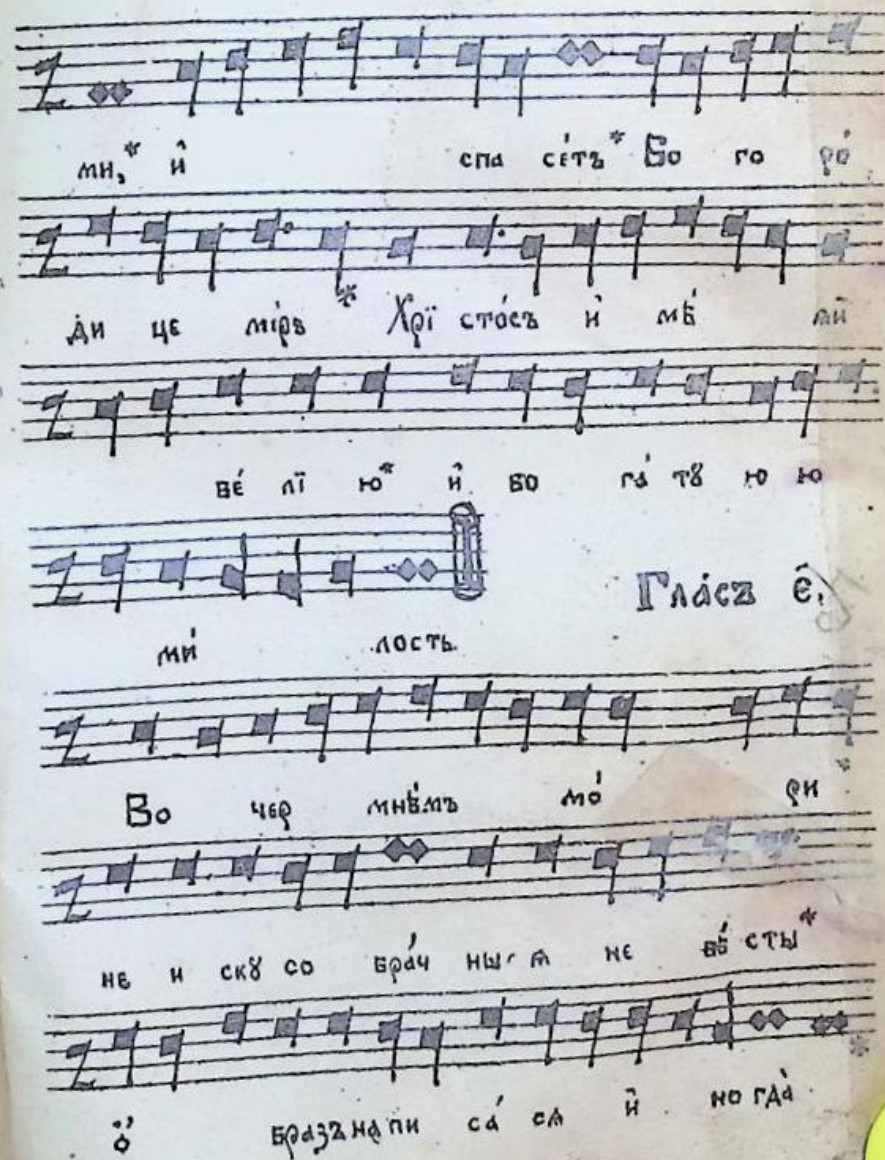 ми,* и҆ спа се́тъ* Бо го ро́
ди це мі́рѣ * Хрї сто́съ и҆ мѣ́ ѧй
ве́ лї ю* и҆ бо га́ тꙋ ю ю
Гла́съ є҃.
ми́ лость
Во чер мнѣ́мъ мо́ ри *
не и скꙋ со бра́ч ны ѧ не вѣ́ сты*
ѻ҆́ бразъ на пи са́ сѧ и҆ но гда̀ *